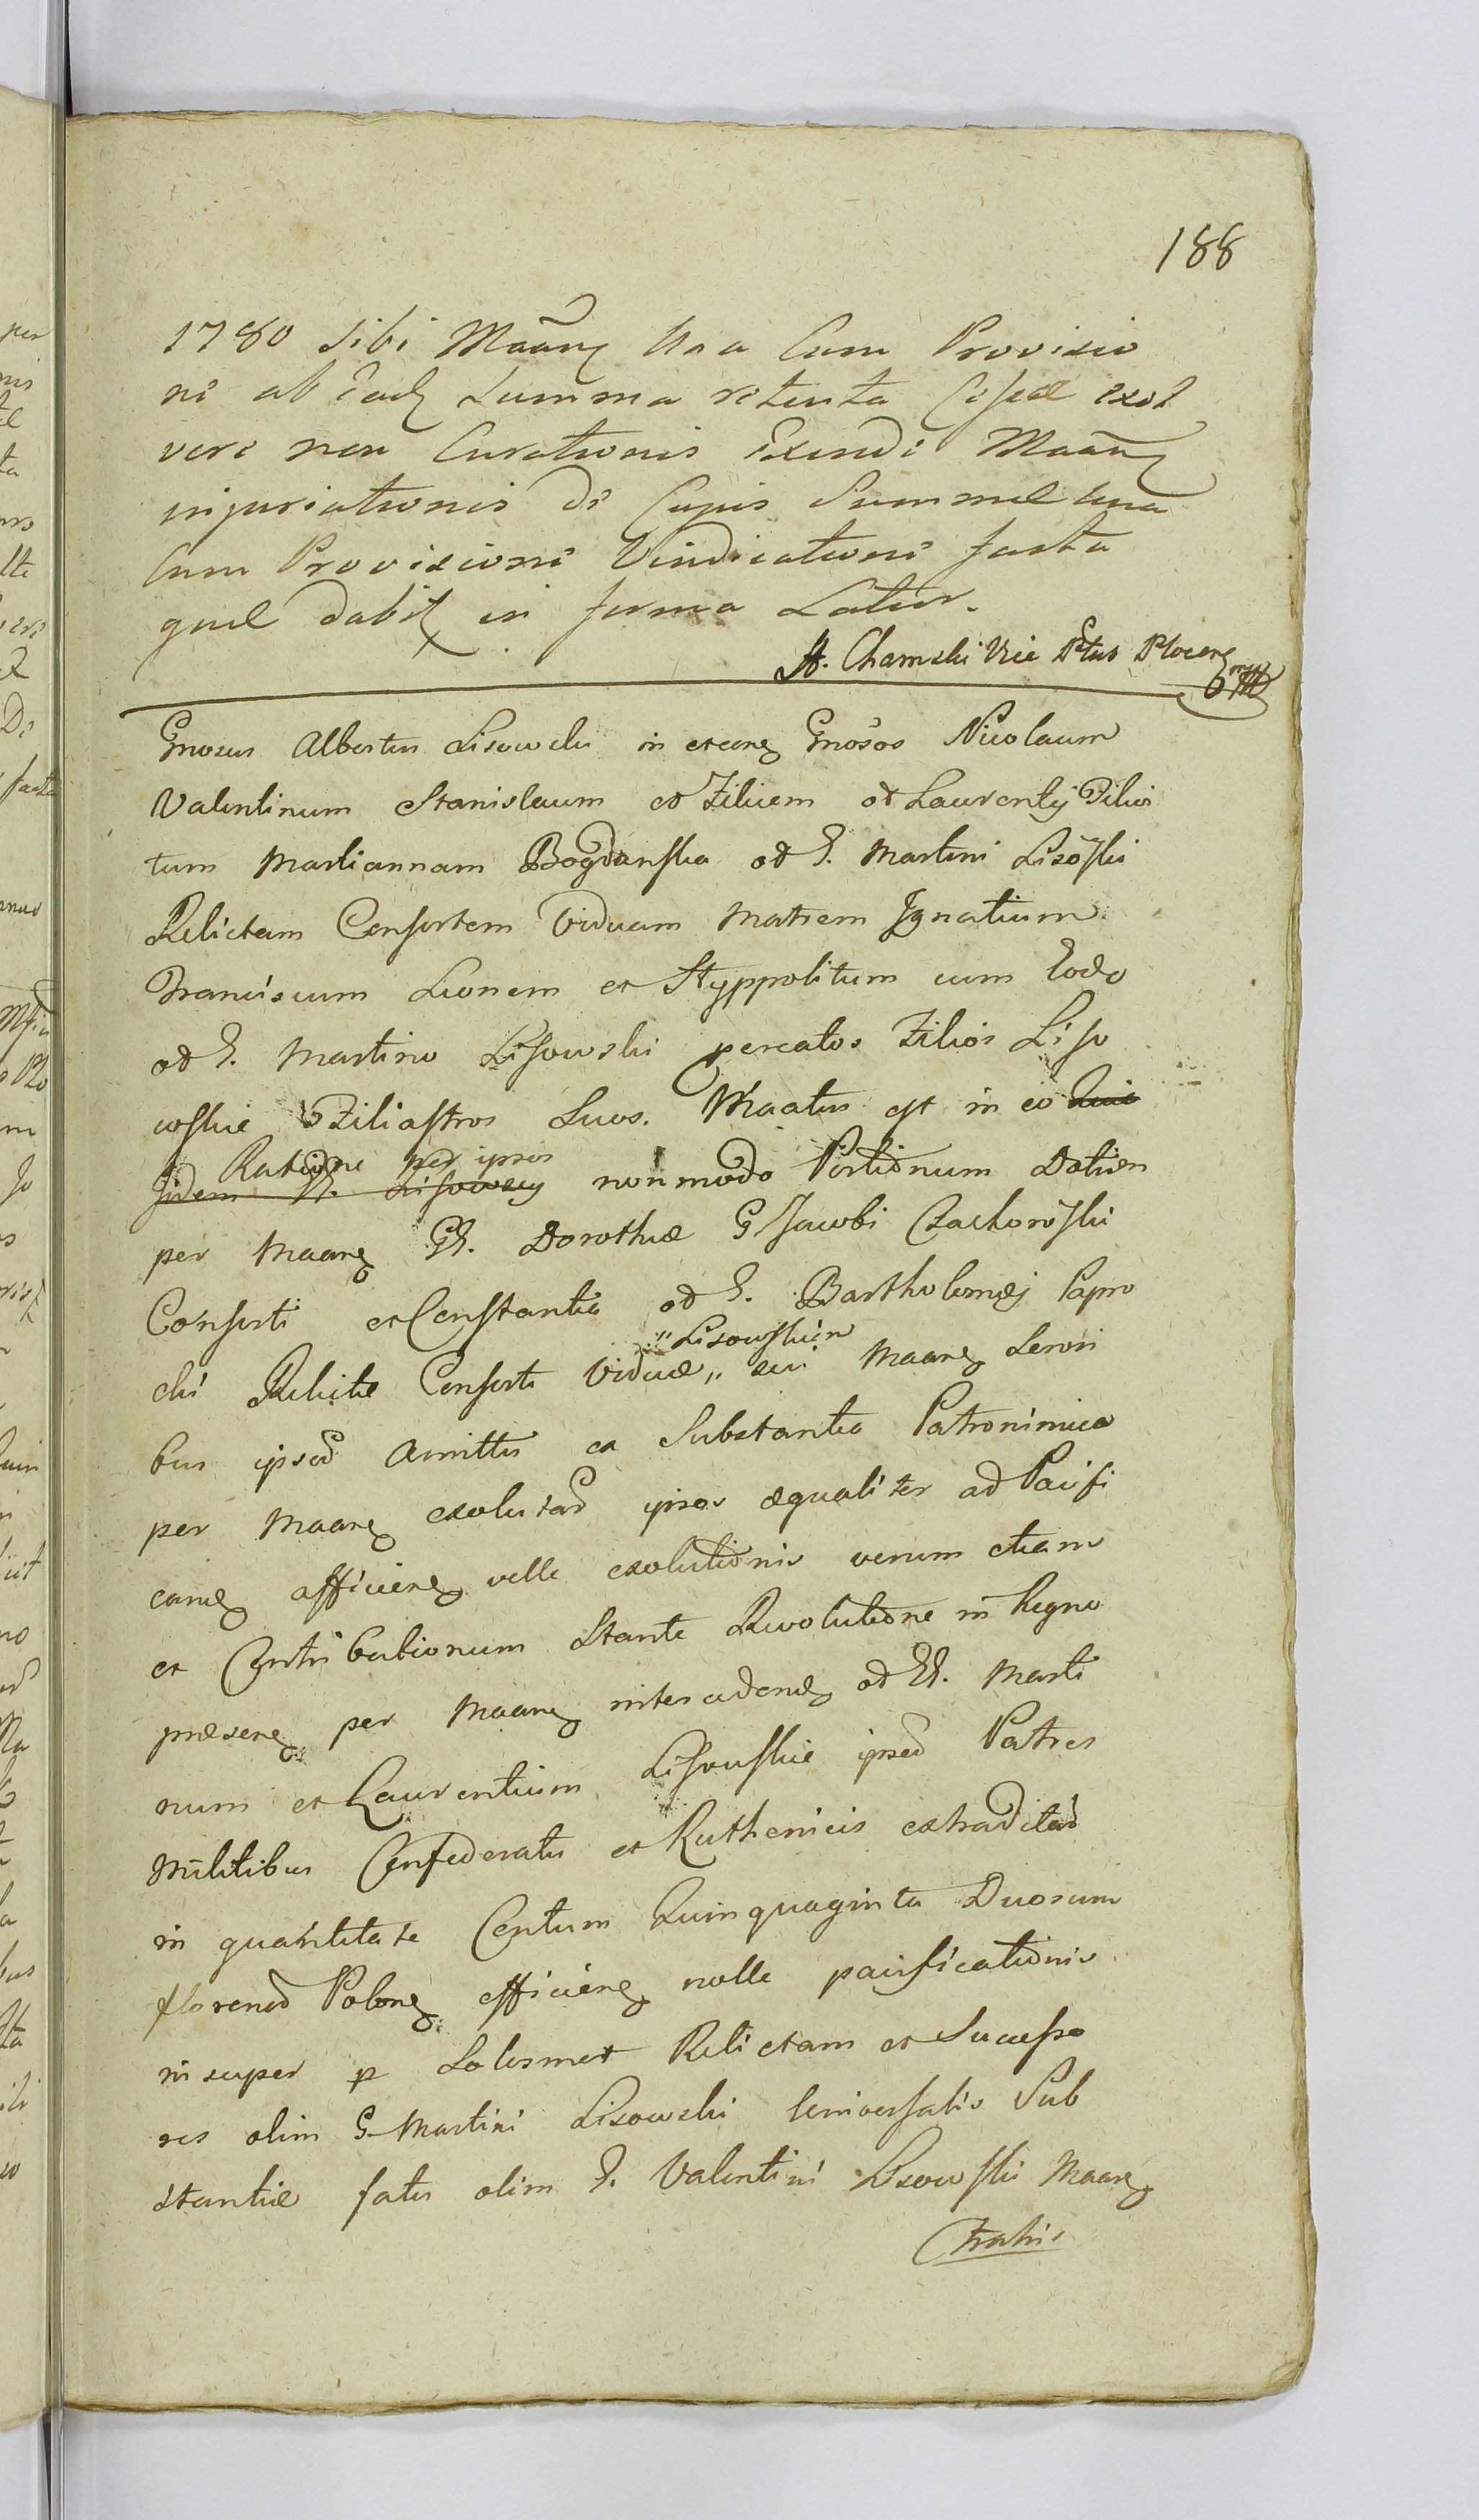 188
1780 sibi Maãnq Una Cum Provisio
ne ab eadq Summa retenta exol
vere non Curationis Exinde Maãnq
injuriationis de Cujus Summæ una
Cum Provisione Vindicatione facta
quæ dabitq in forma Latior.
A. Chamski Vice Ptus Plocenq
Gnosus Albertus Lisowski in et conq Gnosos Nicolaum
Valentinum Stanislaum et Filium od Laurentij Filios
tum Mariannam Bogdanska od G. Martini Lisoski
Relictam Consortem Viduam Matrem Ignatium
Franciscum Leonem et Hyppolitum cum Eodo
od G. Martino Lisowski percatos Filios Liso
wskie Filiastros Suos. Maatus est in eo Quia
Ratione per ipsos
Iidem G. Lisowscy non modo Portionum Dotien
per Maanq GG. Dorothæ G Jacobi Czachoroski
Consorti et Constantia od G. Bartholomæj Papro
cki Relictæ Consorti Viduæ „ sui Maanq Sorori
„ Lisowskien
bus ipsod Amittis ex Substantia Patronimica
per Maanq exolutad ipsos æqualiter ad Pacifi
candq afficienq velle exolutionis verum etiam
et Contributionum Stante Revolutione in Regno
præsenq per Maanq intercedendq od GG. Marti
num et Laurentium Lisowskie ipsod Patres
Militibus Confederatis et Ruthenicis extraditad
in quantitate Centum Quinquaginta Duorum
florenod Polonq efficienq nolle pacificationis
insuper p Solosmet Relictam et Sucesso
res olim G Martini Lisowski Universalis Sub
stantiæ fatis olim G. Valentini Lisowski Maanq
Fratris